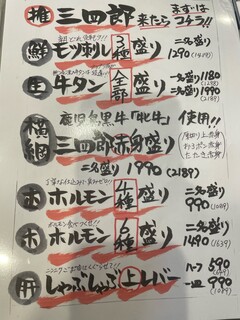 権 三四郎 来たら まずは コチラ!!
鮮 モツ刺し 3種 盛り 二名盛り
1290 (1419)
生 牛タン 全部 盛り 二名盛り 1180
三名盛り 1990
(2189)
横綱 鹿児島黒牛「牝牛」使用!!
三四郎赤身盛り
二名盛り 1990 (2189)
ホ ホルモン 4種 盛り 二名盛り
990
ホ ホルモン 6種 盛り 二名盛り
1490 (1639)
肝 しゃぶしゃぶ 上 レバー ハーフ 590
一皿 990